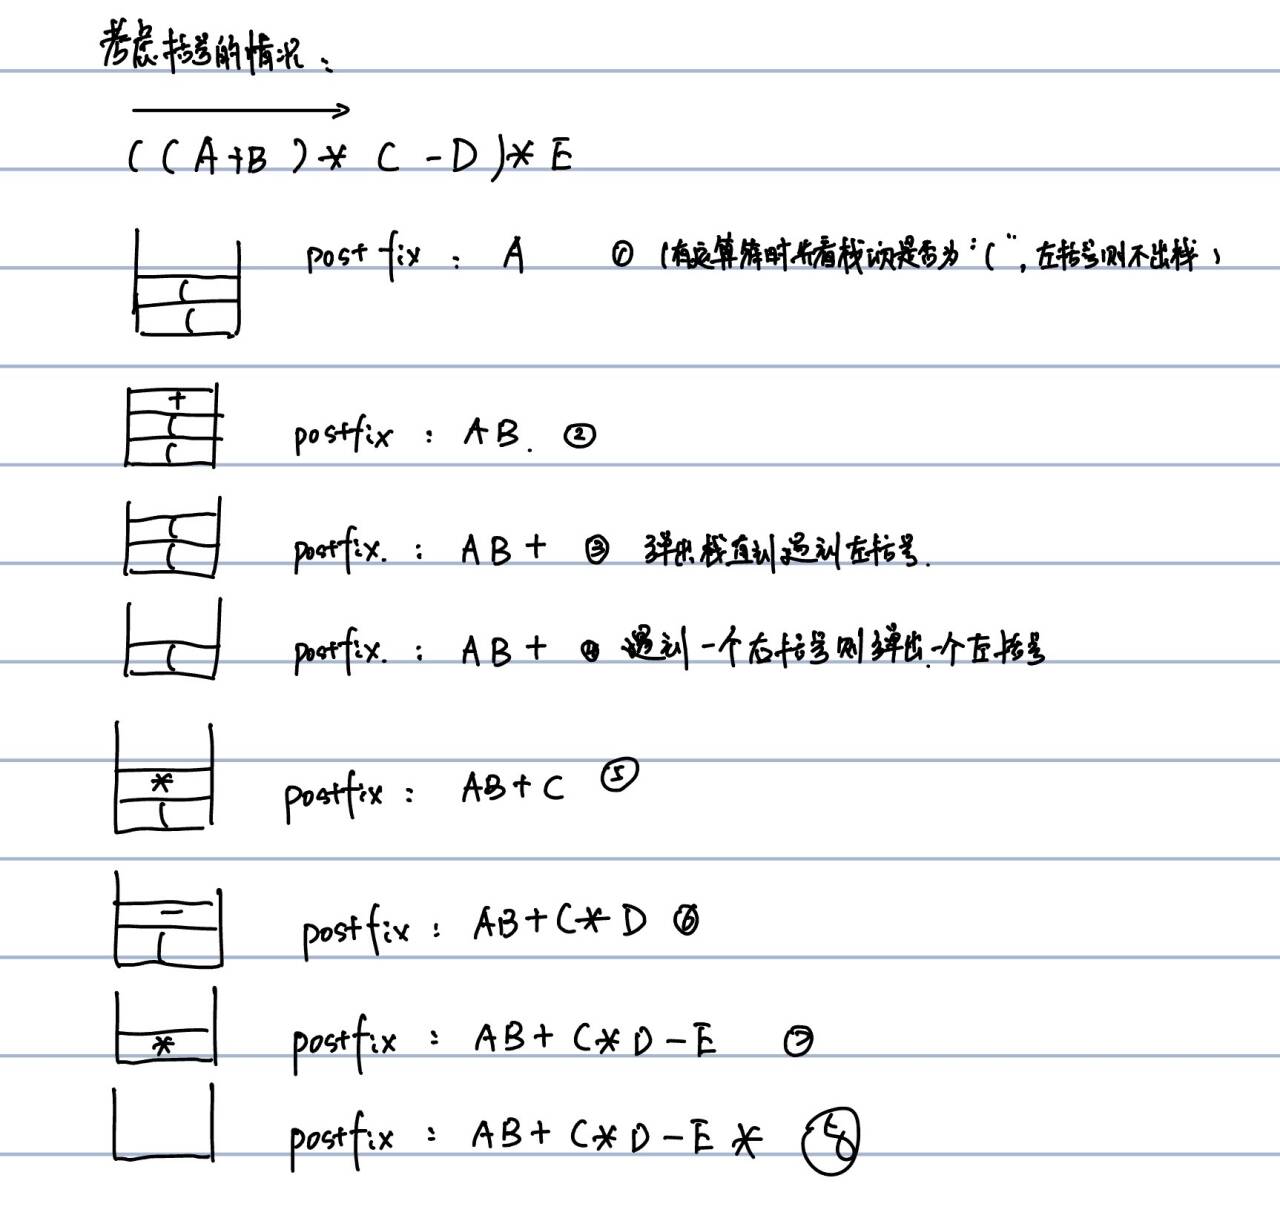 考虑括号的情况：
((A+B)*C-D)*E
(
(
postfix : A ① (有运算符时先看栈顶是否为"(", 左括号则不出栈)
+
(
(
postfix : AB. ②
(
(
postfix. : AB+ ③ 弹出栈直到遇到左括号.
(
postfix. : AB+ ④ 遇到一个右括号则弹出一个左括号
*
(
postfix : AB+C ⑤
-
(
postfix : AB+C*D ⑥
*
postfix : AB+C*D-E ⑦
postfix : AB+C*D-E* ⑧